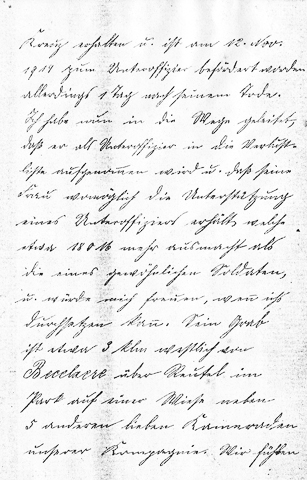 Kreuz erhalten u. ist am 12. Nov.
1914 zum Unteroffizier befördert worden
allerdings 1 Tag nach seinem Tode.
Ich habe nun in die Wege geleitet,
daß er als Unteroffizier in die Verlust-
liste aufgenommen wird u. daß seine
Frau womöglich die Unterstützung
eines Unteroffiziers erhält, welche
etwa 180 M mehr ausmacht als
die eines gewöhnlichen Soldaten,
u. würde mich freuen, wenn ich's
durchsetzen kann. Sein Grab
ist etwa 3 klm westlich von
Becelaere über Reutel im
Park auf einer Wiese neben
5 anderen lieben Kameraden
unserer Kompagnie. Wir